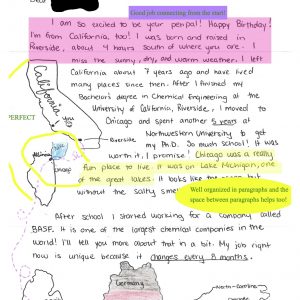 Good job connecting from the start!
I am so excited to be your penpal! Happy Birthday!
I'm from California, too! I was born and raised in
Riverside, about 4 hours south of where you are. I
miss the sunny, dry, and warm weather. I left
California about 7 years ago and have lived
many places since then. After I finished my
Bachelor's degree in Chemical Engineering at the
University of California, Riverside, I moved to
Chicago and spent another 5 years at
Northwestern University to get
my Ph.D. So much school! It was
worth it, I promise! Chicago was a really
fun place to live. It was on Lake Michigan, one
of the great lakes. It looks like the
without the salty
California
PERFECT
Riverside
Illinois
Chicago
Well organized in paragraphs and the
space between paragraphs helps too!
After school I started working for a company called
BASF. It is one of the largest chemical companies in the
world! I'll tell you more about that in a bit. My job right
now is unique because it changes every 8 months.
Germany
North Carolina